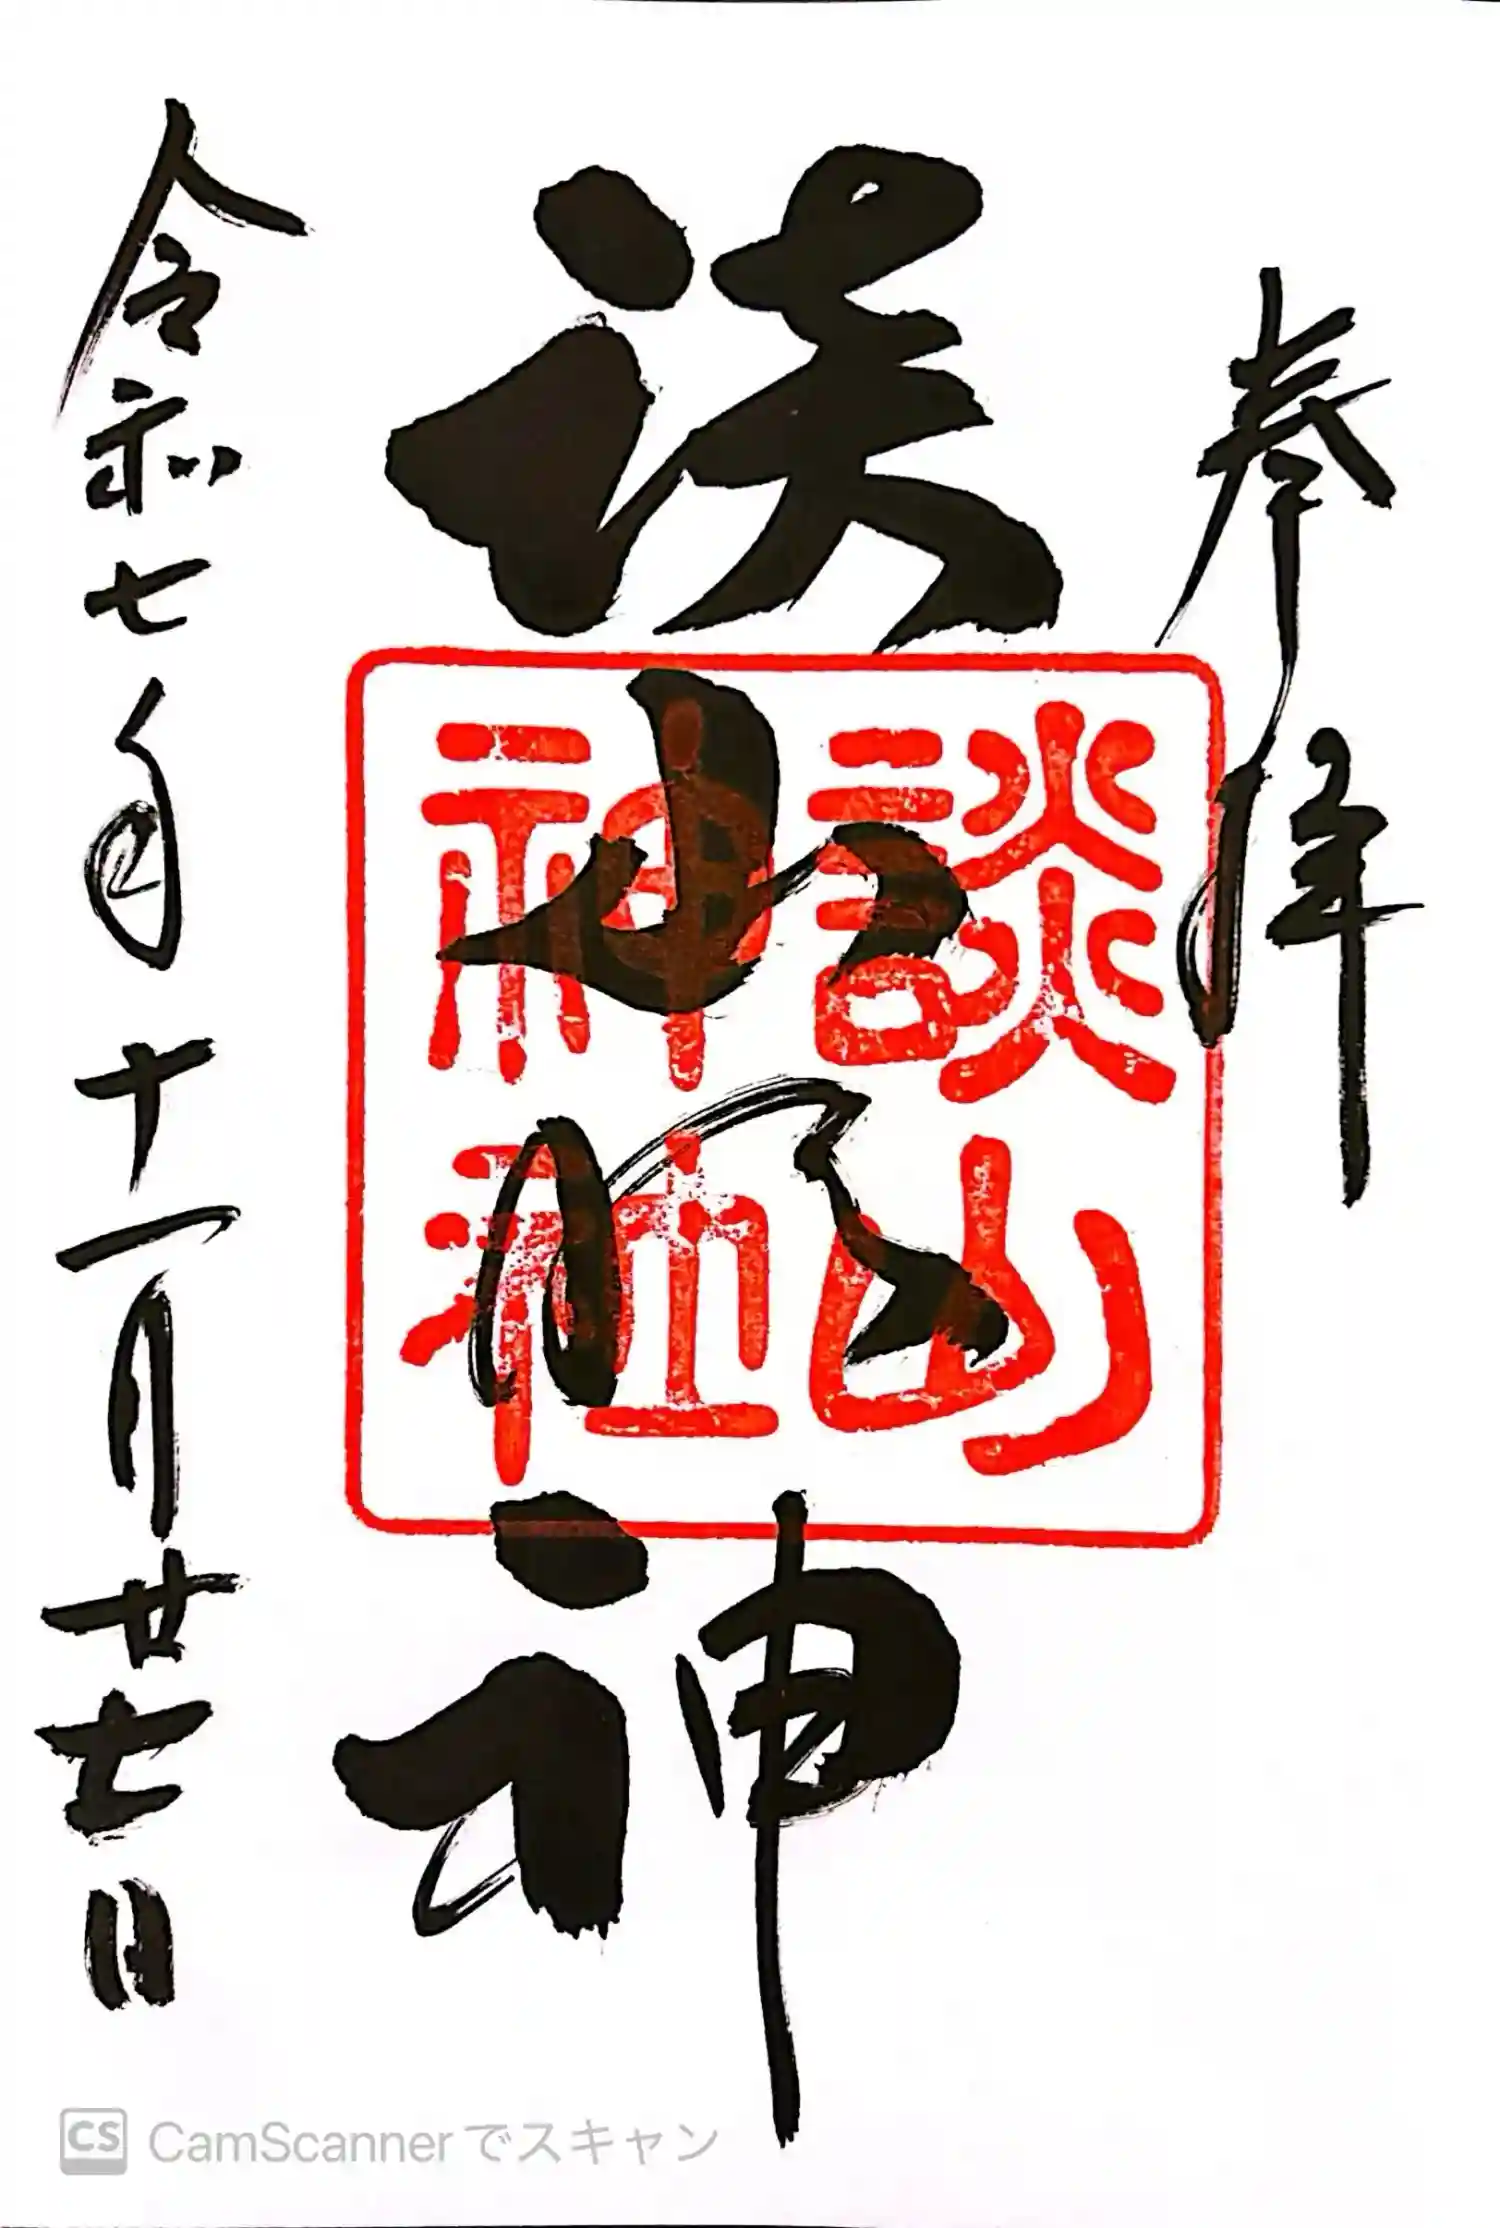 奉拝
談山神
談山
神社
令和七年十一月廿七日
CS CamScannerでスキャン